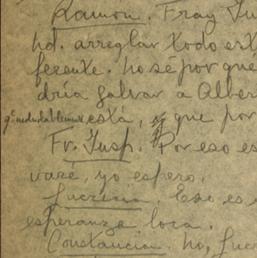 Ramón. Fray Jus
hd. arreglar todo est
ferente. no sé por que
dría salvar a Alber
qe indudablemente está, y que por
Fr. Jusp. Por eso es
varé, yo espero.
Lucrecia. Eso es
esperanza loca.
Constancia. No, Lucre